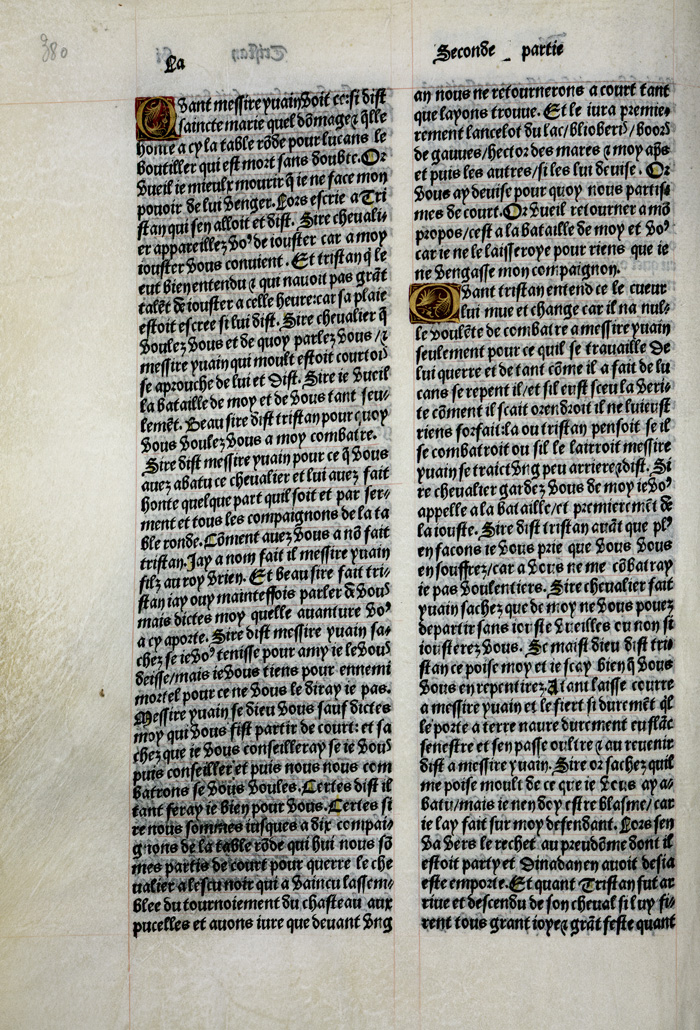 380
La
Seconde partie
Quant messire yuain voit ce: si dist
saincte marie quel dõmage ⁊ q̃lle
honte a cy la table rõde pour lucans le
boutiller qui est mort sans doubte. Or
vueil ie mieulx mourir q̃ ie ne face mon
pouoir de lui venger. Lors escrie a Tri
stan qui sen alloit et dist. Sire cheuali⸗
er appareillez voꝰ de iouster car a moy
iouster vous conuient. Et tristan q̃ le
eut bien entendu ⁊ qui nauoit pas grãt
talẽt de iouster a celle heure: car sa plaie
estoit escree si lui dist. Sire cheualier q̃
voulez vous et de quoy parlez vous /⁊
messire yuain qui moult estoit courtois
se aprouche de lui et Dist. Sire ie vueil
la bataille de moy et de vous tant seu⸗
lemẽt. Beau sire dist tristan pour quoy
vous voulez vous a moy combatre.
Sire dist messire yuain pour ce q̃ vous
auez abatu ce cheualier et lui auez fait
honte quelque part quil soit et par ser⸗
ment et tous les compaignons de la ta
ble ronde. Cõment auez vous a nõ fait
tristan. Jay a nom fait il messire yuain
filz au roy vrien. Et beau sire fait tri⸗
stan iay ouy mainteffois parler d̃ vous
mais dictes moy quelle auanture voꝰ
a cy aporte. Sire dist messire yuain sa⸗
chez se ie voꝰ tenisse pour amy ie le vous
deisse/mais ie vous tiens pour ennemi
mortel pour ce ne vous le diray ie pas.
Messire yuain se dieu vous sauf dictes
moy qui vous fist partir de court: et sa
chez que ie vous conseilleray se ie vous
puis conseiller et puis nous nous com
batrons se vous voules. Certes dist il
tant feray ie bien pour vous. Certes si
re nous sommes iusques a dix compai⸗
gnons de la table rõde qui hui nous sõ
mes partis de court pour querre le che
ualier a lescu noir qui a vaincu lassem⸗
blee du tournoiement du chasteau aux
pucelles et auons iure que deuant vng
an nous ne retournerons a court tant
que layons trouue. Et le iura premie⸗
rement lancelot du lac/blioberis/boors
de gauues/hector des mares ⁊ moy aps̃
et puis les autres/si les lui deuise. Or
vous ay deuise pour quoy nous partis⸗
mes de court. Or vueil retourner a mõ
propos/cest a la bataille de moy et voꝰ
car ie ne le laisseroye pour riens que ie
ne vengasse mon compaignon.
Quant tristan entend ce le cueur
lui mue et change car il na nul⸗
le voulẽte de combatre a messire yuain
seulement pour ce quil se trauaille De
lui querre et de tant cõme il a fait de lu
cans se repent il/et sil eust sceu la veri⸗
te cõment il scait orendroit il ne lui eust
riens forfait: la ou tristan pensoit se il
se combatroit ou sil le lairroit messire
yuain se traict vng peu arriere ⁊ dist. Si
re cheualier gardez vous de moy ie voꝰ
appelle a la bataille/et premieremẽt d̃
la iouste. Sire dist tristan auãt que plꝰ
en facons ie vous prie que vous vous
en souffrez/car a vous ne me cõbatray
ie pas voulentiers. Sire cheualier fait
yuain sachez que de moy ne vous pouez
departir sans iouste vueilles ou non si
iousterez vous. Se maist dieu dist tri⸗
stan ce poise moy et ie scay bien q̃ vous
vous en repentirez. Atant laisse courre
a messire yuain et le fiert si duremẽt ql̃
le porte a terre naure durement eu flãc
senestre et sen passe oultre ⁊ au reuenir
dist a messire yuain. Sire or sachez quil
me poise moult de ce que ie vous ay a⸗
batu/mais ie nen doy estre blasme/car
ie lay fait sur moy defendant. Lors sen
va vers le rechet au preudõme dont il
estoit party et Dinadan en auoit desia
este emporte. Et quant Tristan fut ar
riue et descendu de son cheual si luy fi⸗
rent tous grant ioye ⁊ grãt feste quant